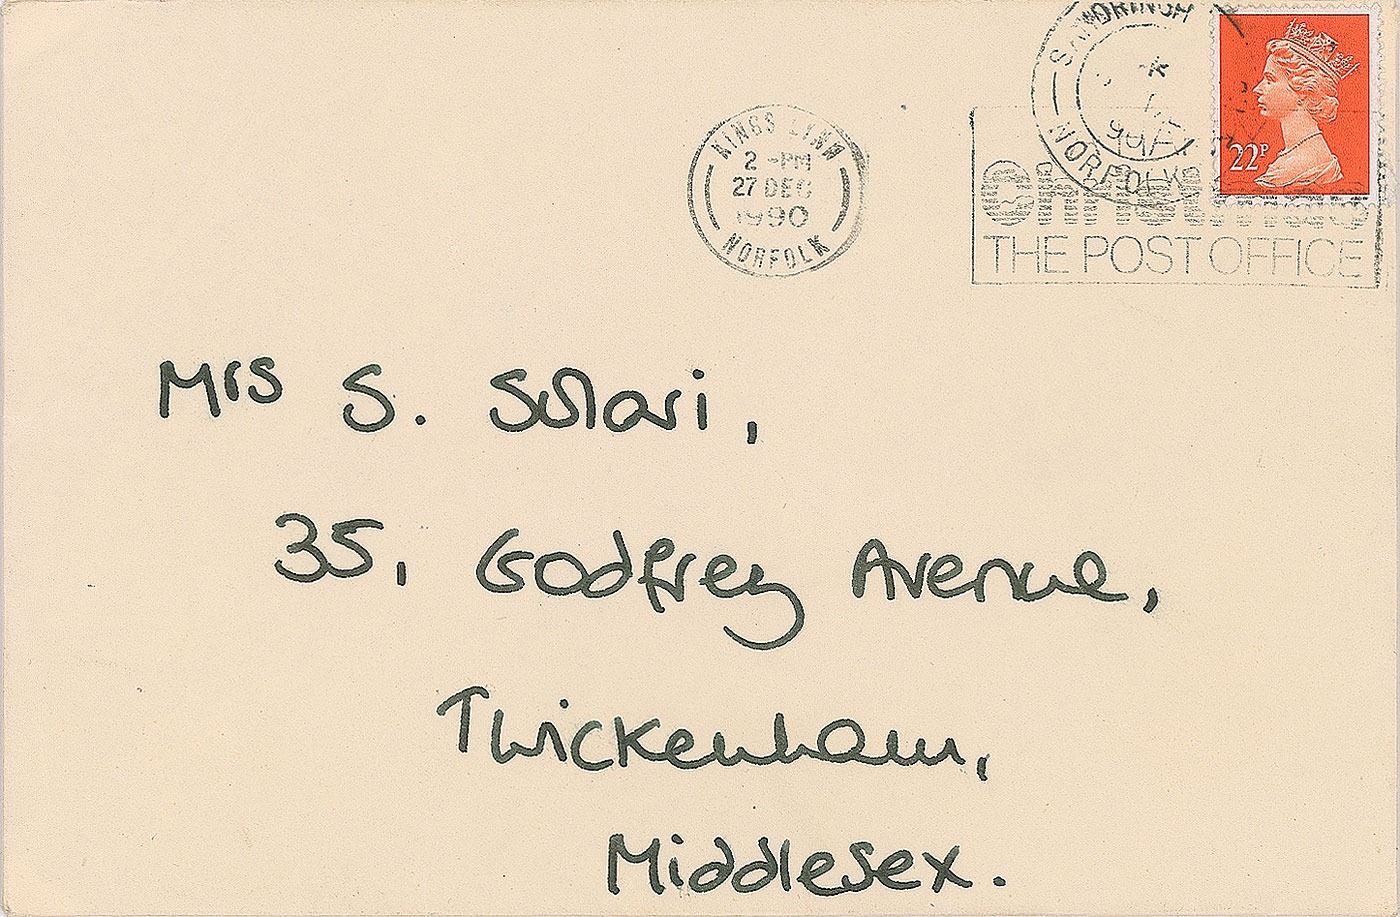 SANDRINGH
NORFOLK
22P
KINGS LYNN
2 -PM
27 DEC
1990
NORFOLK
THE POST OFFICE
Mrs S. Solari,
35, Godfrey Avenue,
Twickenham,
Middlesex.